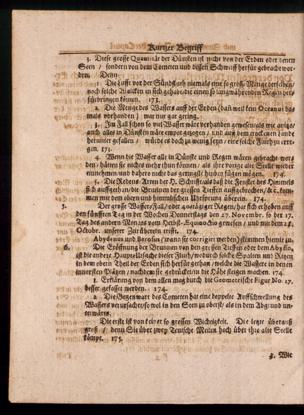 Kurtzer Begriff
3. Diese grosse Quantität der Dünsten ist nicht von der Erden oder denen
Seen / sondern von dem Cometen und dessen Schweiff herfür gebracht wor-
den. Denn
1. Die Lufft vor der Sündfluth niemals eine so grosse Menge derselben /
noch solche Wolcken in sich gehabt die einen so langwährenden Regen
fürbringen können. 173.
2. Die Menge des Wassers auff der Erden (daß weil kein Oceanus da-
mals vorhanden) war nur gar gering.
3. Im Fall schon so viel Wasser wäre vorhanden gewesen als wie
auch alles in Dünsten wäre empor gezogen / und auß dem
herunter gefallen / würde es doch zu wenig seyn / eine solche Fluth zu erre-
gen. 173.
4. Wenn die Wasser alle in Dünste und Regen wären gebracht wor-
den / hätte es nichts mehr thun können / als ihre vorige alte Stelle wieder
einnehmen und dahero nicht das geringste hiezu fügen mögen. 174.
5. Die Redens-Arten der H. Schrifft / als daß die Fenster des Himmels
sich auffgethan / die Brunnen der grossen Tieffen auffgebrochen / &c. kom-
men mit dem oben und himmlischen Uhrsprung überein. 174.
5. Der grosse Wasser-Fall / oder 40tägiger Regen / hat sich erhoben auff
den fünfften Tag in der Wochen Donnerstages den 27. Novemb. so der 17.
Tag des andern Monats vom Herbst-Æquinoctio gewesen / und mit dem 28.
Octobr. unserer Zeit überein trifft. 174.
Abydenus und Berosus / wann sie corrigiret werden / stimmen hiemit zu.
6. Die Eröffnung der Brunnen von den grossen Tieffen oder dem Abysso,
ist die andere Haupt-Ursache dieser Fluth / wodurch solche Spalten und Ritzen
in dem obern Theil der Erden sich herfür gethan / welche die Wasser in denen
innersten Plätzen / nachdem sie gedrücket / in die Höhe steigen machen. 174.
1. Erklärung von dem allen mag durch die Geometrische Figur No. 17.
besser gefasset werden. 174.
2. Die Gegenwart des Cometen hat eine doppelte Auffschwellung des
Wassers verursachet so wol in den Seen zu oberst / als in dem Abysso und un-
ten wärts.
Die erste ist von keiner so grossen Wichtigkeit. Die letzte überauß
groß / denn sie über zwey Teutsche Meilen hoch über ihre alte Stelle
kömpt. 175.
3. Wie